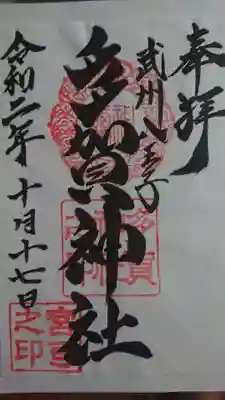 奉拝
武州八王子
多賀神社
令和二年十月十七日
宮司之印